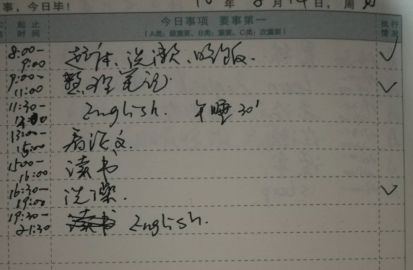 事，今日毕！ 年 8月14日，周
起止时间 今日事项 要事第一 执行情况
（A类：最重要、B类：重要、C类：次重要）
8:00-9:00 起床、洗漱、吃饭. ✓
9:00-11:00 整理笔记. ✓
11:30- English. 午睡30'
13:00-15:00 看论文
15:00-16:00 读书
16:30-19:00 洗澡. ✓
19:30-21:30 English.